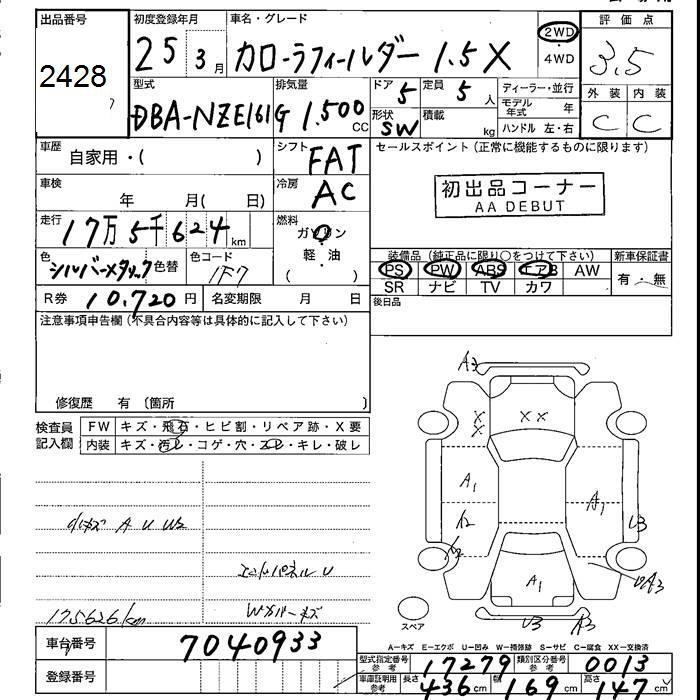 出品番号 初度登録年月 車名・グレード 評価点
2428 25 3月 カローラフィールダー 1.5X 2WD ・ 4WD 3.5
型式 排気量 ドア 定員 ディーラー・並行 外装 内装
DBA-NZE161G 1.500 CC 5 5人 モデル年式 年 C C
形状 SW 積載 kg ハンドル 左・右
車歴 自家用・( ) シフト FAT セールスポイント(正常に機能するものに限ります)
車検 年 月( 日) 冷房 AC 初出品コーナー
AA DEBUT
走行 17万5千624km 燃料 ガソリン
軽・油
( )
色 シルバーメタリック 色替 色コード 1F7
装備品(純正品に限り○をつけて下さい) 新車保証書
PS PW ABS エアB AW 有・無
SR ナビ TV カワ
R券 10.720円 名変期限 月 日 後日品
注意事項申告欄(不具合内容等は具体的に記入して下さい)
修復歴 有 〔箇所 〕
検査員記入欄 FW キズ・飛石・ヒビ割・リペア跡・X要
内装 キズ・汚レ・コゲ・穴・スレ・キレ・破レ
A3
X X XX
A1 A1
A2 U3
A1
U3 A3
スペア
小キズ A U W2
エンドパネルU
175626km
A-キズ E-エクボ U-凹み W-補修跡 S-サビ C-腐食 XX-交換済
車台番号 7040933
登録番号
型式指定番号 参考 17279 類別区分番号 参考 0013
車庫証明用 参考 長さ 436cm 幅 169cm 高さ 147cm